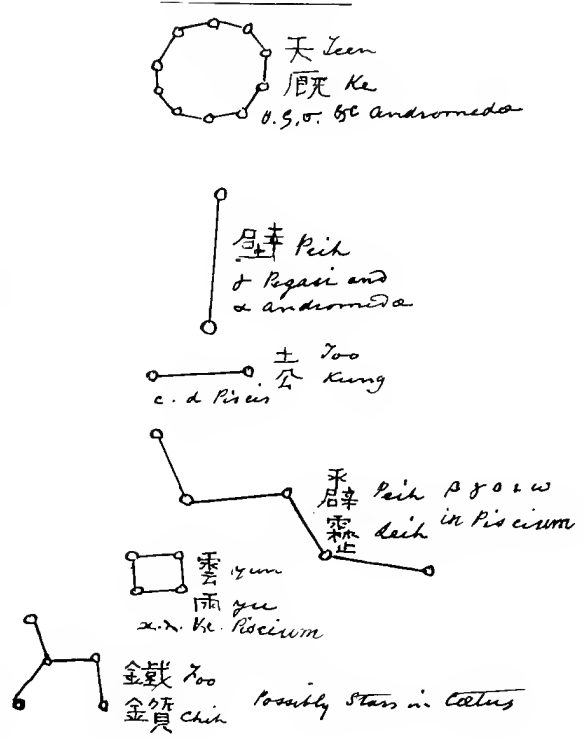 天 Teen
廐 Ke
θ.ς,σ. &c Andromedæ
壁 Peih
γ Pegasi and
α Andromedæ
土 Too
公 Kung
c. d Piscis
霹 Peih β γ θ ι ω
靂 Leih in Piscium
雲 Yun
雨 Yu
κ.λ. &c. Piscium
鐵 Foo
鑕 Chih Possibly Stars in Cœtus